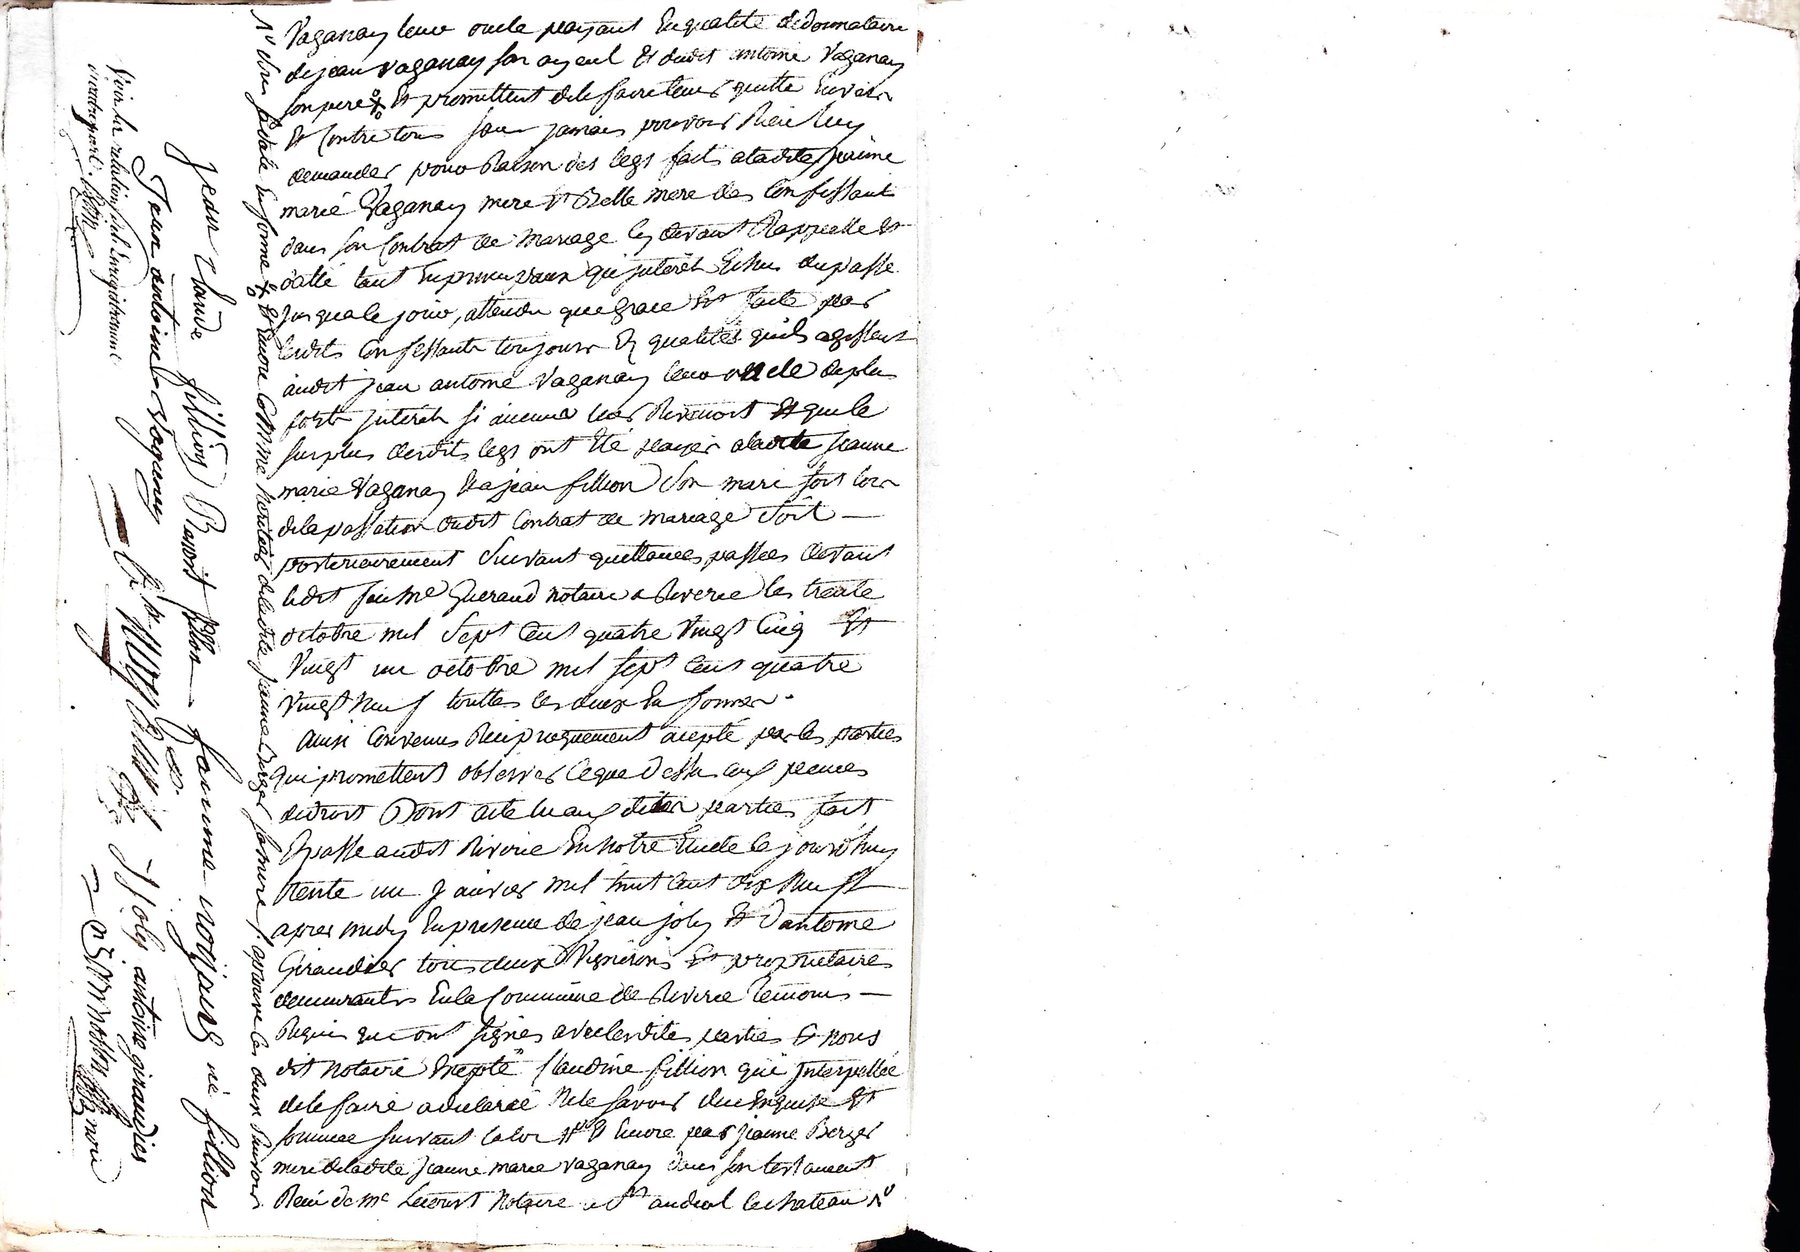 Vaganay leur oncle payant En qualité de Donnataire
de jean vaganay son ayeul Et dudit antoine Vaganay
son pere Et promettent de le faire tenir quitte Envers
Et Contre tous sans jamais pouvoir Rien luy
demander pour Raison des legs faits a ladite jeanne
marie Vaganay mere Et Belle mere des Confessant
dans son Contrat de mariage cy devant Rappellé Et
datté tant En principaux qu'interets Echus du passé
jusqua ce jour, attendu que grace Est faite par
lesdits Confessants toujours Es qualités qu'ils agissent
audit jean antoine Vaganay leur oncle de plus
forts interets si aucuns leur Revenoit Et que le
surplus desdits legs ont Eté payés a ladite jeanne
marie Vaganay Et a jean fillion Son mari soit lors
de la passation dudit Contrat de mariage Soit
posterieurement Suivant quittances passées devant
ledit feu Me Guerand notaire a Riverie les trente
octobre mil Sept Cent quatre Vingt Cinq Et
Vingt un octobre mil sept Cent quatre
Vingt Neuf touttes les deux En forme.
Ainsi Convenus Reciproquement accepté par les parties
qui promettent observer Ce que Dessus aux peines
de droit Dont acte lu aux dites parties fait
Et passé audit Riverie En notre Etude Ce jourd'huy
trente un janvier mil huit Cent dix Neuf
apres midy En presence de jean joly Et D'antoine
Giraudier tous deux Vignerons Et proprietaires
demeurants En la Commune de Riverie temoins
Requis qui ont signés avec lesdites parties Et nous
dit Notaire Excepté Claudine fillion qui Interpellée
de le faire a declaré Ne le savoir de ce Enquise Et
sommée suivant la loi Et Encore par jeanne Berger
mere de ladite jeanne marie vaganay dans son testament
Recu de Me Notaire a St andeol le chateau
Et Encore Comme heritiers de ladite jeanne Berger sa mere approuvé les deux Renvois
jean Claude fillion Benoit fillion jeanne né fillion
Jean antoine Vaganay J Joly antoine giraudier